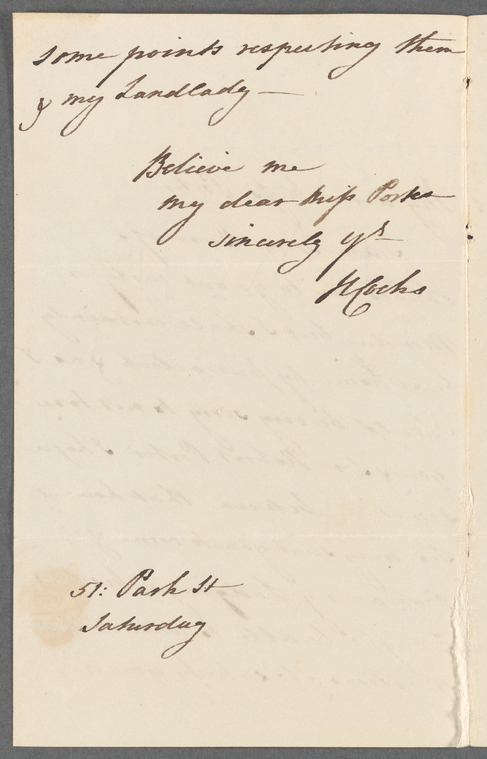 some points respecting them
& my Landlady —
Believe me
my dear Miss Porter
sincerely yrs
51: Park St
Saturday